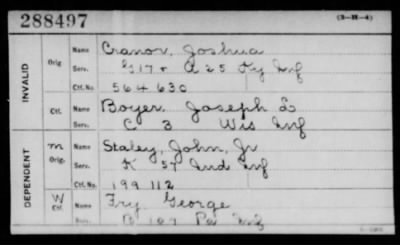 288497 (3-518-4)
INVALID
Orig Name Cranor, Joshua
Serv. G 17 + A 25 Ky Inf
Ctf. No. 564 630
Ctf. Name Boyer, Joseph L
Serv. C 3 Wis Inf
DEPENDENT
m Orig. Name Staley, John, Jr
Serv. K 57 Ind Inf
Ctf. No. 199 112
W Ctf. Name Fry George
Serv. B 107 Pa Inf